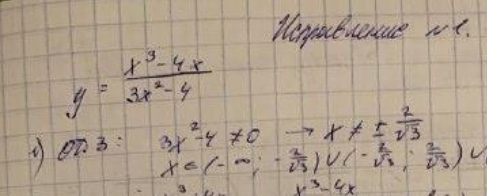 Исправление №1.
y = (x³ - 4x)/(3x² - 4)
1) ООЗ: 3x² - 4 ≠ 0 → x ≠ ± 2/√3
x ∈ (-∞; -2/√3) ∪ (-2/√3; 2/√3) ∪
x³-4x